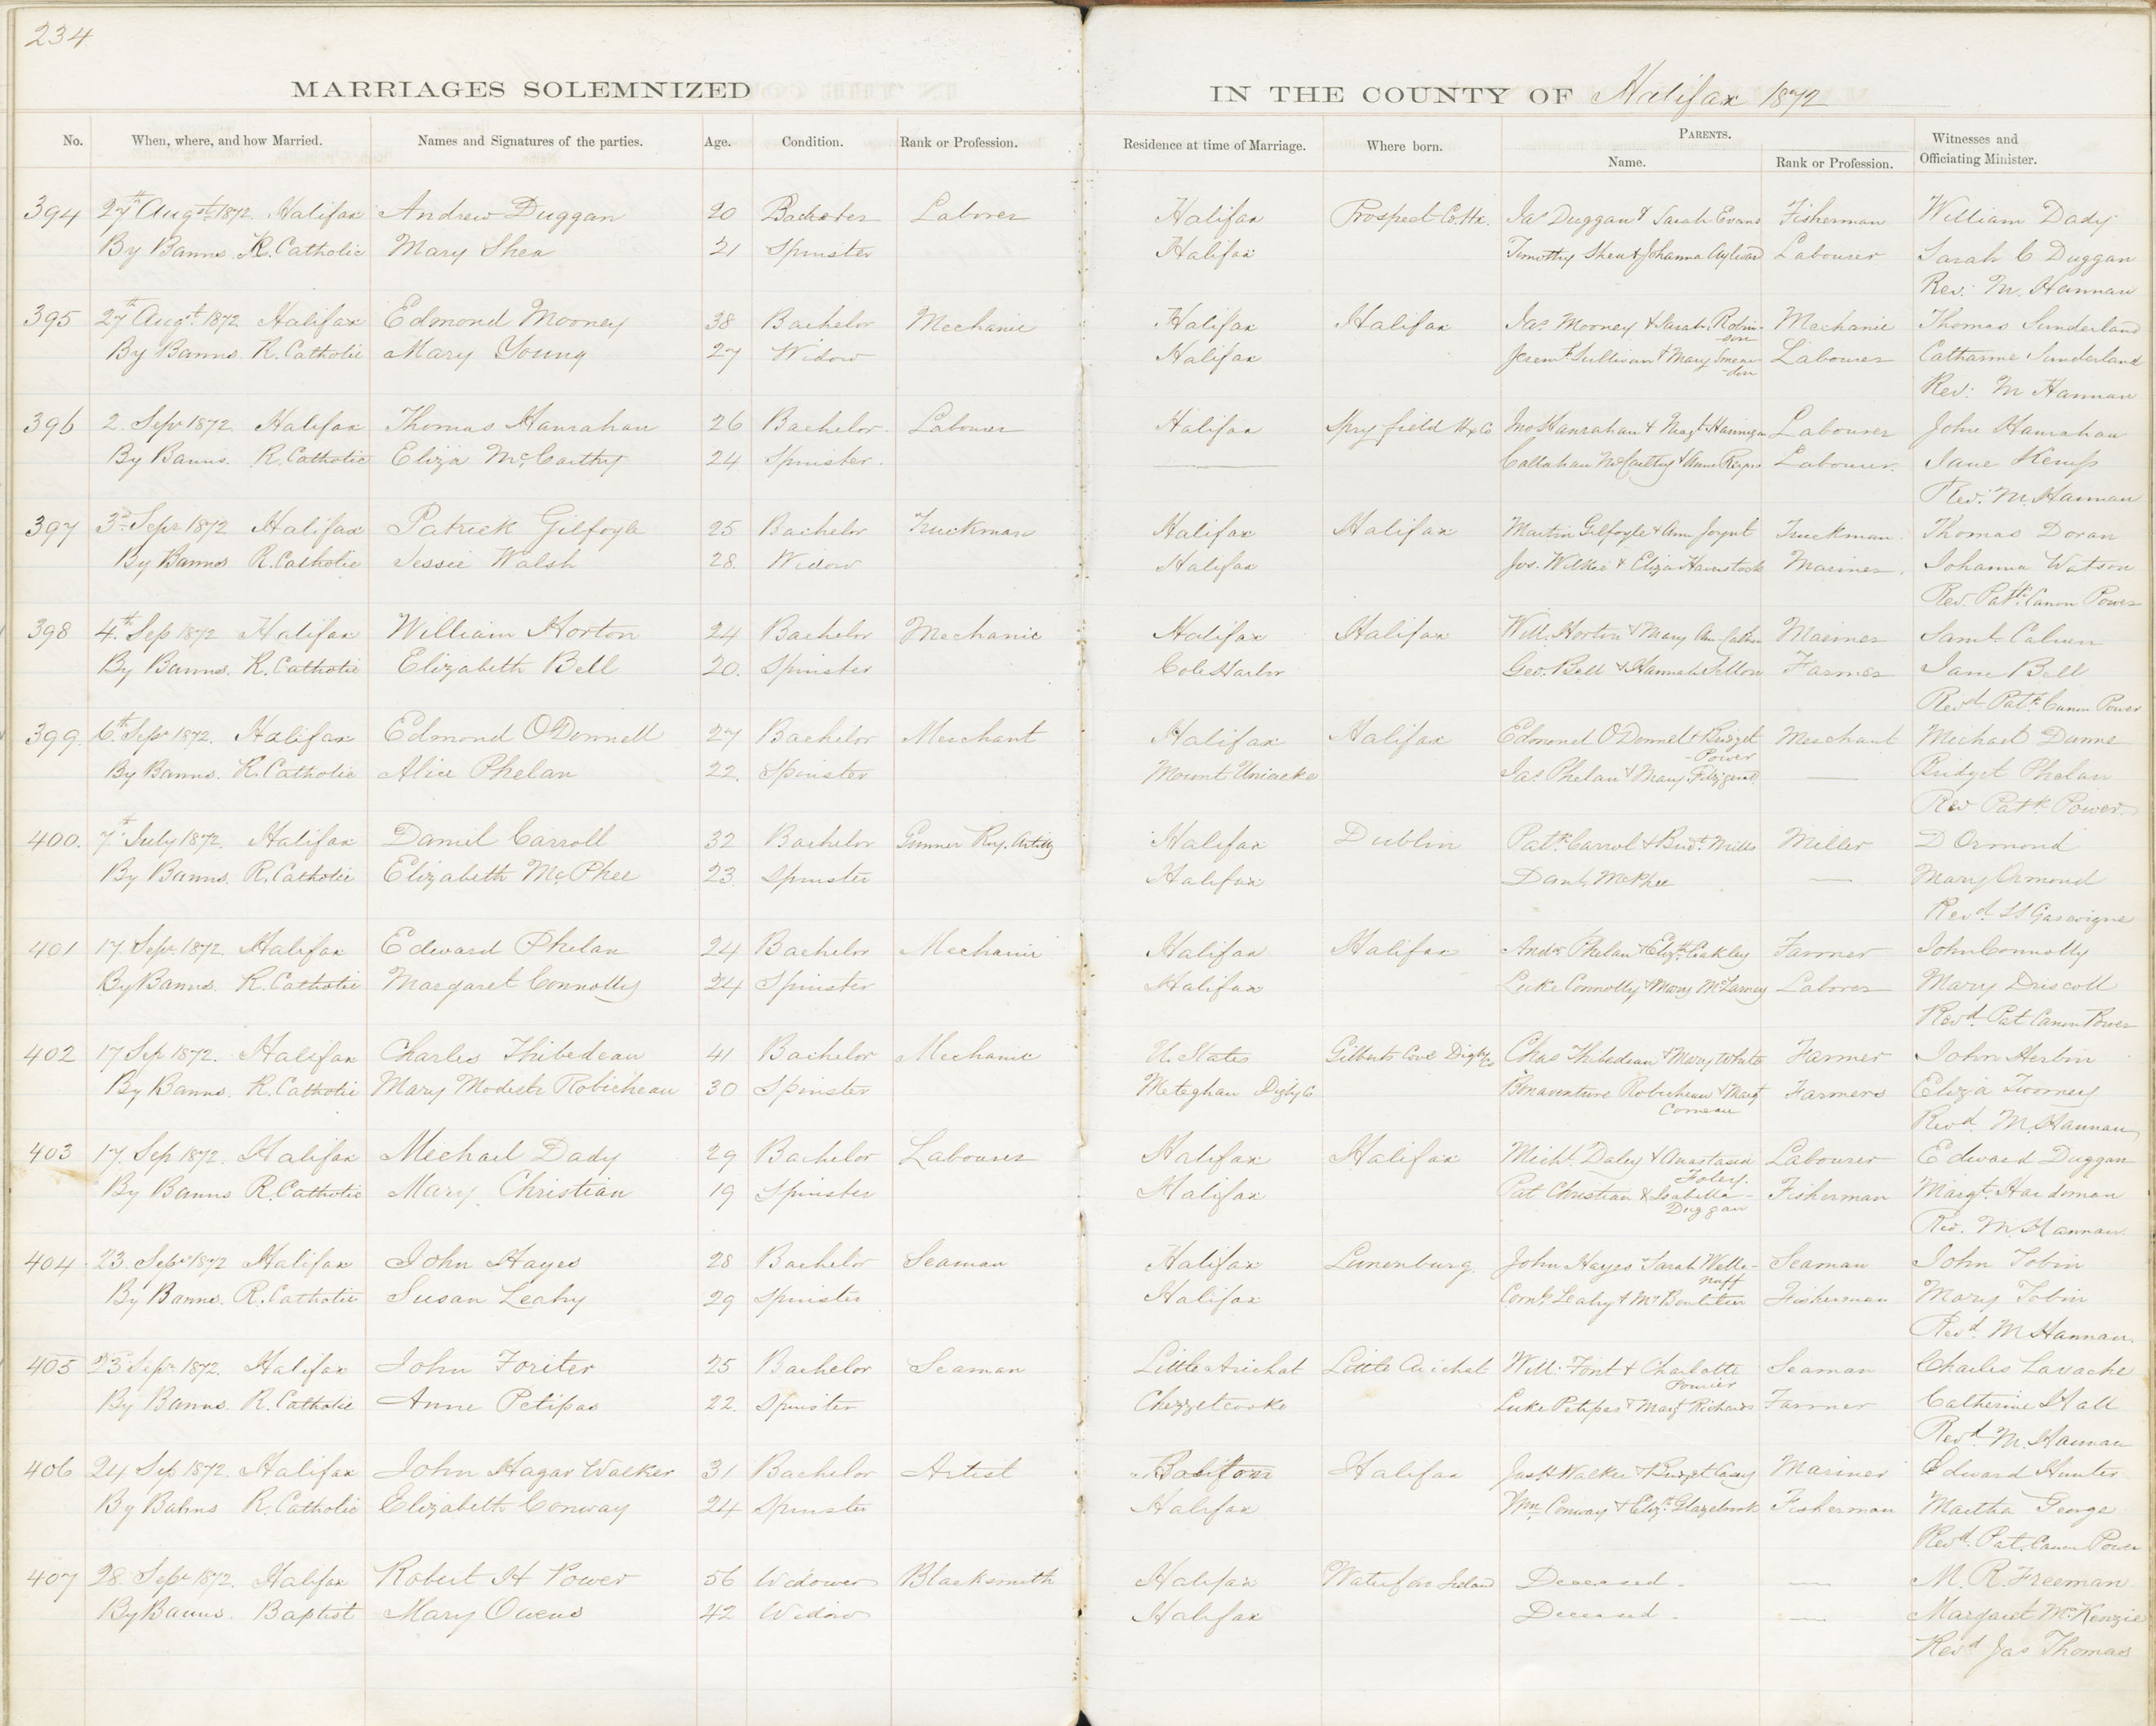 234
MARRIAGES SOLEMNIZED IN THE COUNTY OF Halifax 1872
No. When, where, and how Married. Names and Signatures of the parties. Age. Condition. Rank or Profession. Residence at time of Marriage. Where born. PARENTS. Name. Rank or Profession. Witnesses and Officiating Minister.
394 27th Augst 1872. Halifax Andrew Duggan 20 Bachelor Laborer Halifax Prospect Co Hx. Jas Duggan & Sarah Evans Fisherman William Dady
By Banns. R. Catholic Mary Shea 21 Spinster Halifax Timothy Shea & Johanna Aylward Labourer Sarah C Duggan
Rev. M. Hannan
395 27th Augt. 1872 Halifax Edmond Mooney 38 Bachelor Mechanic Halifax Halifax Jas. Mooney & Sarah Robin-son Mechanic Thomas Sunderland
By Banns. R. Catholic Mary Young 27 Widow Halifax Jeremh Sullivan & Mary Labourer Catharine Sunderland
Rev. M Hannan
396 2. Sepr 1872. Halifax Thomas Hanrahan 26 Bachelor. Labourer Halifax Spryfield Hx Co Jno Hanrahan & Margt. Hannigan Labourer John Hanrahan
By Banns. R. Catholic Eliza McCarthy 24 Spinster. Callahan McCarthy & Anne Labourer. Jane Kemp
Rev. M. Hannan
397 3rd Sepr 1872 Halifax Patrick Gilfoyle 25 Bachelor Truckman Halifax Halifax Martin Gilfoyle & Ann Joynt Truckman. Thomas Doran
By Banns R. Catholic Jessie Walsh 28. Widow Halifax Jos. Wilkie & Eliza Haverstock Mariner. Johanna Watson
Rev. Patk. Canon Power
398 4th. Sep 1872 Halifax William Horton 24 Bachelor Mechanic Halifax Halifax Will. Horton & Mary Ann Mariner Saml.
By Banns. R. Catholic Elizabeth Bell 20. Spinster Cole Harbor Geo. Bell & Hannah Farmer Jane Bell
Revd Patk. Canon Power
399. 6th. Sepr 1872. Halifax Edmond O'Donnell 27 Bachelor Merchant Halifax Halifax Edmond O'Donnel & Bridget Power Merchant Michael Dunne
By Banns. R. Catholic Alice Phelan 22. Spinster Mount Uniacke Jas. Phelan & Mary Fitzgerald — Bridget Phelan
Rev Patk. Power.
400. 7th July 1872. Halifax Daniel Carroll 32 Bachelor Gunner Roy. Artilly Halifax Dublin Patk. Carrol & Bridt. Mills Miller D Ormond
By Banns. R. Catholic Elizabeth McPhee 23. Spinster Halifax Danl. McPhee — Mary Ormond
Revd.
401 17. Sepr. 1872. Halifax Edward Phelan 24 Bachelor Mechanic Halifax Halifax Andw. Phelan & Elizth. Farmer John Connolly
By Banns. R. Catholic Margaret Connolly 24 Spinster Halifax Luke Connolly & Mary Laborer Mary Driscoll
Revd. Pat Canon Power
402 17 Sep 1872. Halifax Charles Thibedeau 41 Bachelor Mechanic U. States Gilberts Cove Digby Co Chas Thibedeau & Mary White Farmer John Herbin
By Banns. R. Catholic Mary Modeste Robicheau 30 Spinster Meteghan Digby Co Bonaventure Robicheau & Margt Comeau Farmers Eliza Twomey
Revd. M. Hannan
403 17. Sep 1872. Halifax Michael Dady 29 Bachelor Labourer Halifax Halifax Michl. Daley & Anastasia Foley. Labourer Edward Duggan
By Banns R. Catholic Mary Christian 19 Spinster Halifax Pat Christian & Isabella Duggan Fisherman Margt. Hardman
Rev. M. Hannan.
404 23. Sepr 1872 Halifax John Hayes 28 Bachelor Seaman Halifax Lunenburg. John Hayes & Sarah Welle-nuff Seaman John Tobin
By Banns. R. Catholic Susan Leahy 29 Spinster Halifax Cornl. Leahy & Fisherman Mary Tobin
Revd. M Hannan.
405 23 Sepr. 1872. Halifax John Foriter 25 Bachelor Seaman Little Arichat Little Arichat Will. & Charlotte Poirier Seaman Charles Lavache
By Banns. R. Catholic Anne Petipas 22. Spinster Chezzetcooke Luke Petipas & Margt Richards Farmer Catherine Hall
Revd. M. Hannan
406 24 Sep 1872. Halifax John Hagar Walker 31 Bachelor Artist Halifax Jas H Walker & Bridget Casey Mariner Edward Hunter
By Bahns R. Catholic Elizabeth Conway 24 Spinster Halifax Wm. Conway & Elizth. Glazebrook Fisherman Martha George
Revd. Pat. Canon Power
407 28 Sepr 1872. Halifax Robert H Power 56 Widower Blacksmith Halifax Waterford Ireland Deceased. — M. R. Freeman
By Banns. Baptist Mary Owens 42 Widow Halifax Deceased. — Margaret McKenzie
Revd Jas Thomas